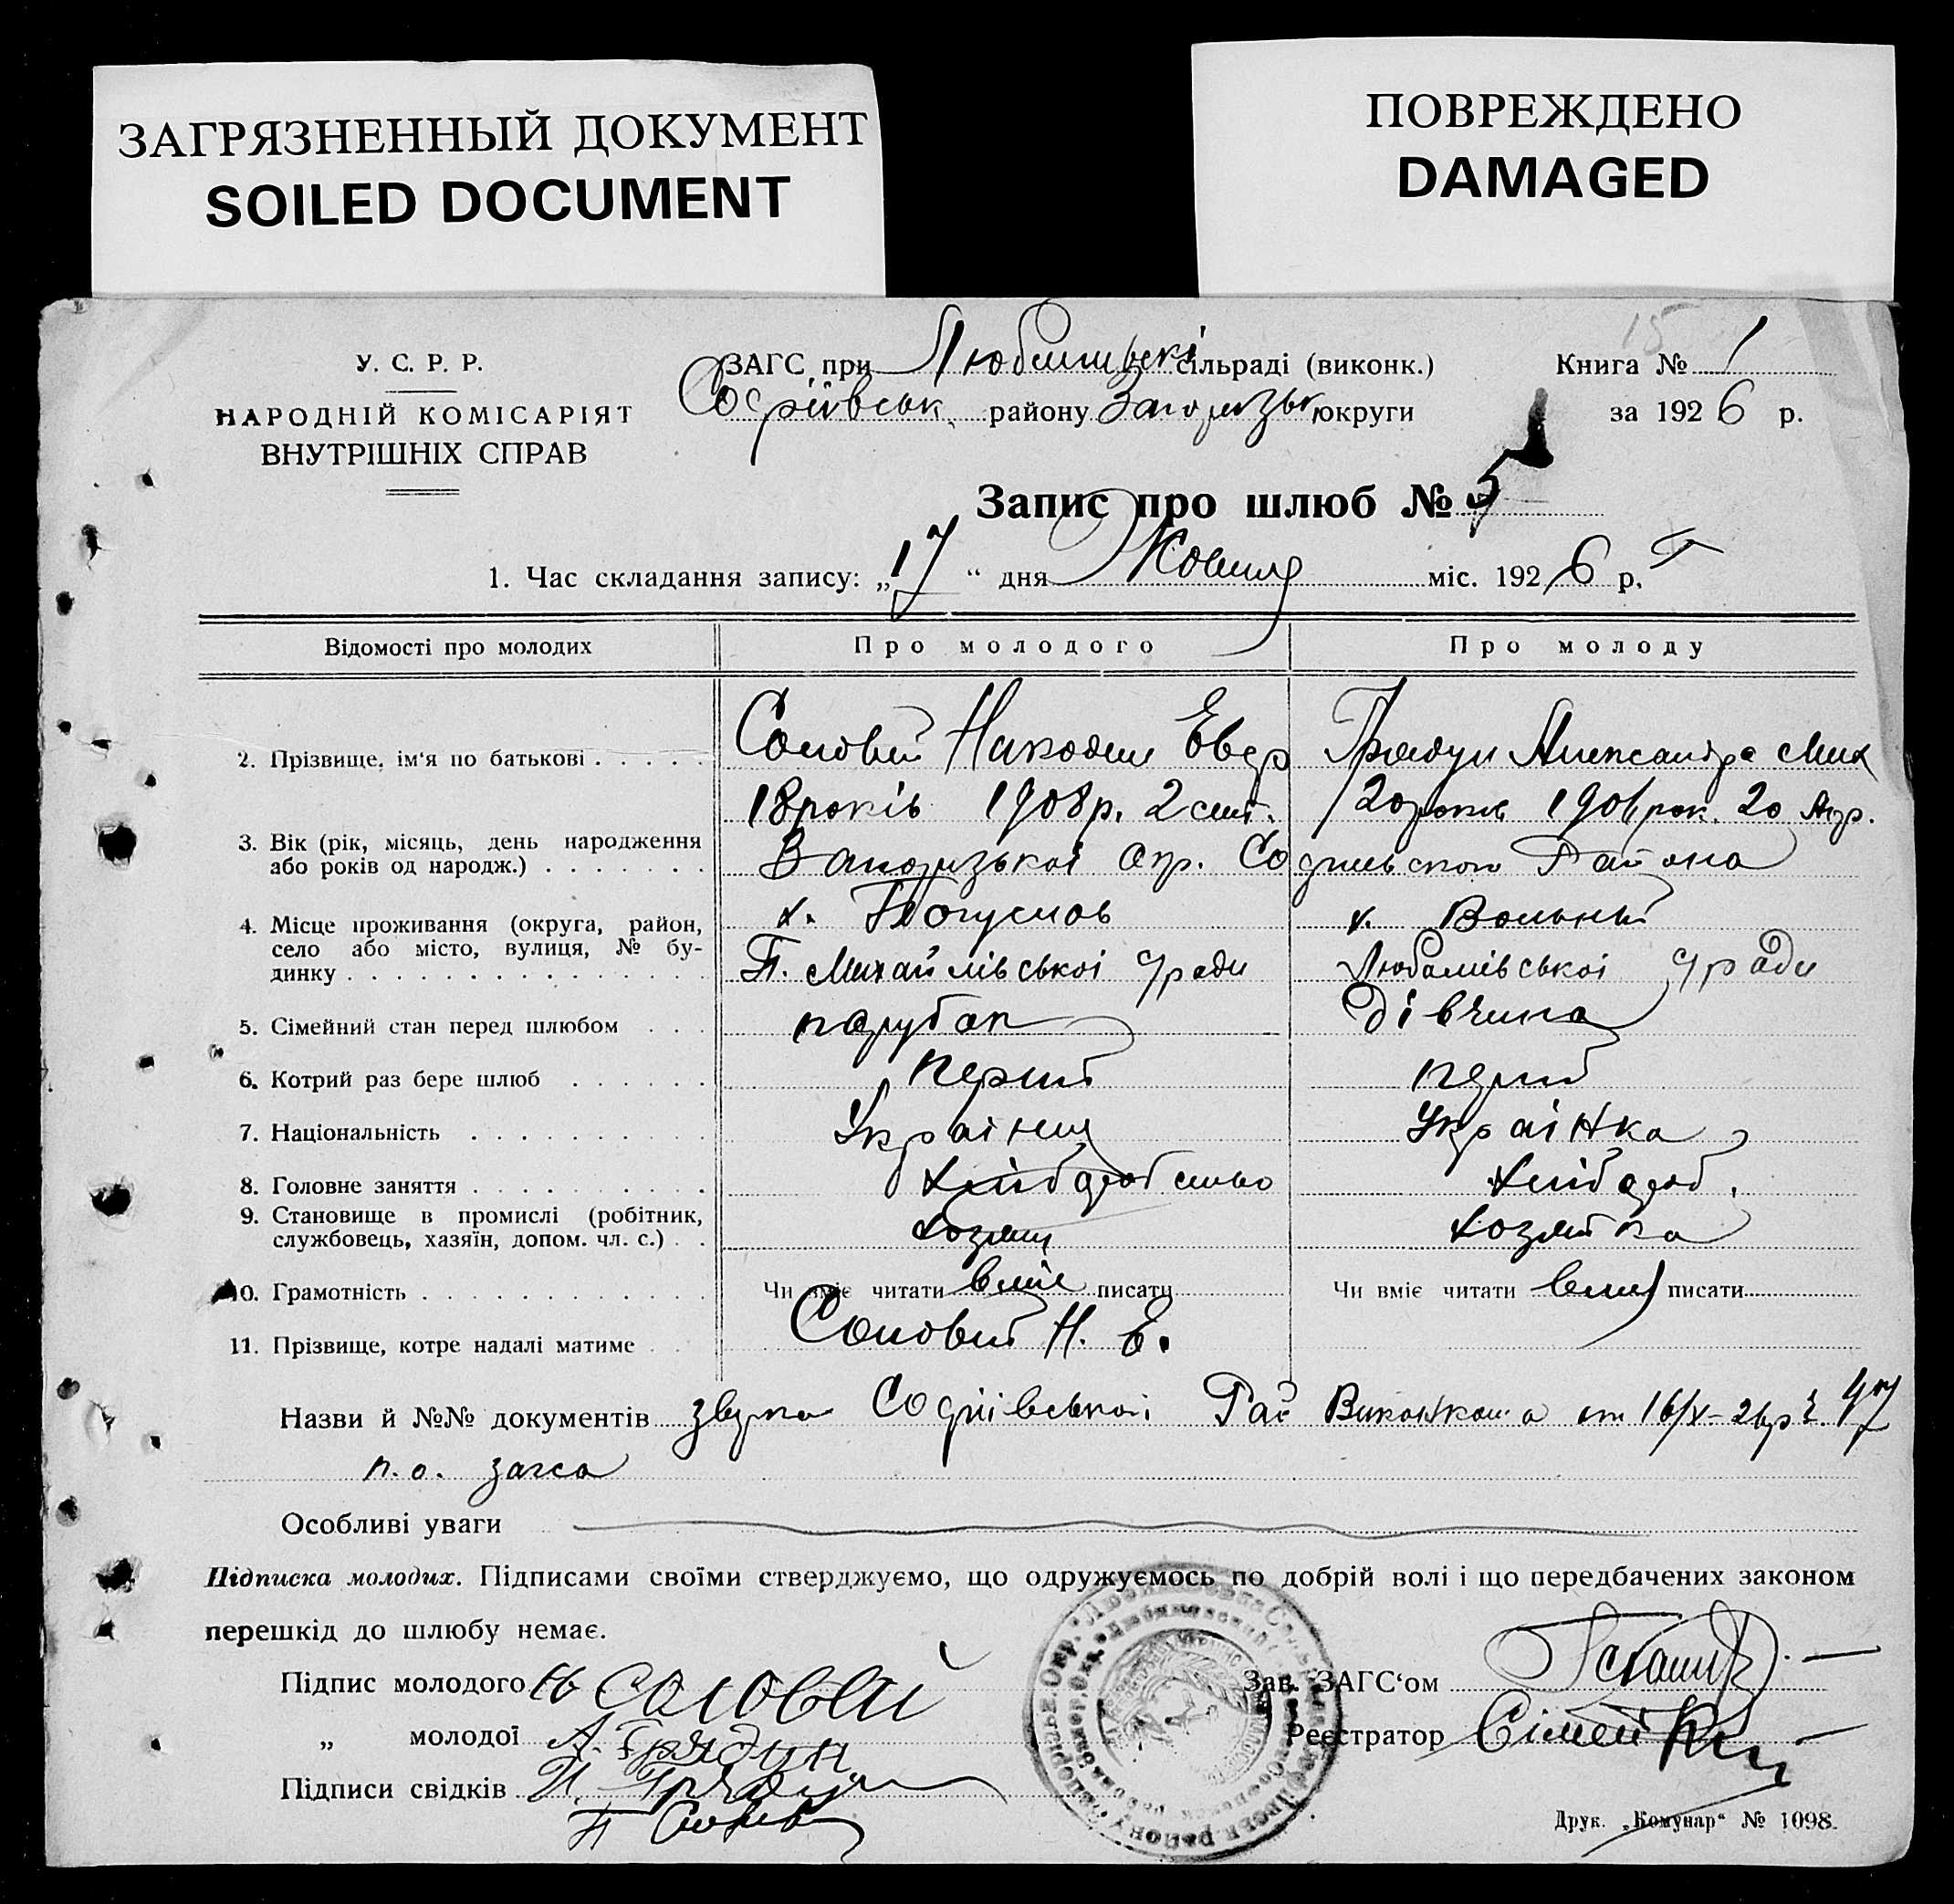 ЗАГРЯЗНЕННЫЙ ДОКУМЕНТ
SOILED DOCUMENT
ПОВРЕЖДЕНО
DAMAGED
У. С. Р. Р.
НАРОДНІЙ КОМІСАРІЯТ
ВНУТРІШНІХ СПРАВ
ЗАГС при сільраді (виконк.)
району округи
Книга № 1
за 1926 р.
Запис про шлюб № 5
1. Час складання запису: „17“ дня Жовтня міс. 1926 р.
Відомості про молодих
Про молодого
Про молоду
2. Прізвище, ім'я по батькові
Соловей
Александра Мих
18 років 1908 р. 2 сент.
20 років 1906 рок. 20 Апр.
3. Вік (рік, місяць, день народження
або років од народж.)
Района
4. Місце проживання (округа, район,
село або місто, вулиця, № бу-
динку
х.
х. Вольный
П. Михайлівської с/ради
с/ради
5. Сімейний стан перед шлюбом
парубок
дівчина
6. Котрий раз бере шлюб
перший
перший
7. Національність
Українец
Українка
8. Головне заняття
хліборобство
хлібороб.
9. Становище в промислі (робітник,
службовець, хазяїн, допом. чл. с.)
хозяин
хозяйка
10. Грамотність
Чи вміє читати вміє писати
Чи вміє читати вміє писати
11. Прізвище, котре надалі матиме
Соловей Н. Е.
Назви й №№ документів Рай Виконкома от 16/X-26р. 47
п.о. загса
Особливі уваги
Підписка молодих. Підписами своїми стверджуємо, що одружуємось по добрій волі і що передбачених законом
перешкід до шлюбу немає.
Підпис молодого Соловей
„ молодої А. Грядун
Підписи свідків
Зав. ЗАГС'ом
Реєстратор
Друк. „Комунар“ № 1098.